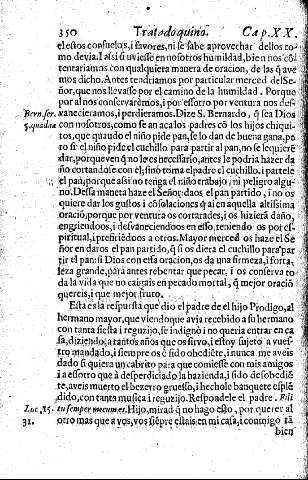 350 Tratado quinto. Cap. XX.
estos consuelos, i favores, ni se sabe aprovechar dellos co-
mo devia. I assi si uviesse en nosotros humildad, bien nos cō
tentariamos con qualquiera manera de oracion, de las q̄ ave
mos dicho. Antes tendriamos por particular merced del Se-
ñor, que nos llevasse por el camino de la humildad. Porque
por aì nos conservarèmos, i por essotro por ventura nos des-
Bern. ser. vaneceriamos, i perdieramos. Dize S. Bernardo, q̄ sea Dios
con nosotros, como se an acà los padres cō los hijos chiqui-
tos, que quando el niño pide pan, se lo dan de buena gana, pe-
ro si el niño pide el cuchillo para partir al pan, no se le quierē
dar, porque ven q̄ no le es necessario, antes le podria hazer da
ño cortandose con el; sino toma el padre el cuchillo, i partele
el pan, porque assi no tenga el niño trabajo, ni peligro algu-
no. Dessa manera haze el Señor: daos el pan partido, i no os
quiere dar los gustos i cōsolaciones q̄ ai en aquella altissima
oraciō, porque por ventura os cortarades, i os hiziera daño,
engriendoos, i desvaneciendoos en esso, teniendo os por es-
piritual, i prefiriēdoos a otros. Mayor merced os haze el Se
ñor en daros el pan partido, q̄ si os diera el cuchillo para par-
tir el pan: si Dios con essa oracion, os da una firmeza, i forta-
leza grande, para antes rebentar que pecar, i os conserva to-
da la vida que no caigais en pecado mortal, q̄ mejor oraciō
quereis, i que mejor fruto.
Esta es la respuesta que dio el padre de el hijo Prodigo, al
hermano mayor, que viendo que avia recebido a su hermano
con tanta fiesta i regozijo, se indignò i no queria entrar en ca
sa, diziendo, a tantos años que os sirvo, i estoy sujeto a vues-
tro mandado, i siempre os è sido obediēte, i nunca me aveis
dado si quiera un cabrito para que comiesse con mis amigos
i a essotro que à desperdiciado la hazienda, i sido desobediē
te, aveis muerto el bezerro gruesso, i hechole banquete esplē
dido, con tanta musica i regozijo. Respondele el padre. Fili
Luc. 15. tu semper mecum es. Hijo, mirad q̄ no hago esso, por querer al
31. otro mas que a vos, vos siēpre estais en mi casa, i conmigo tā
bien